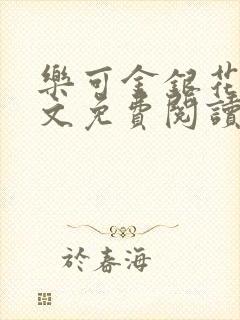 樂可金銀花
文免費閱讀
於春海